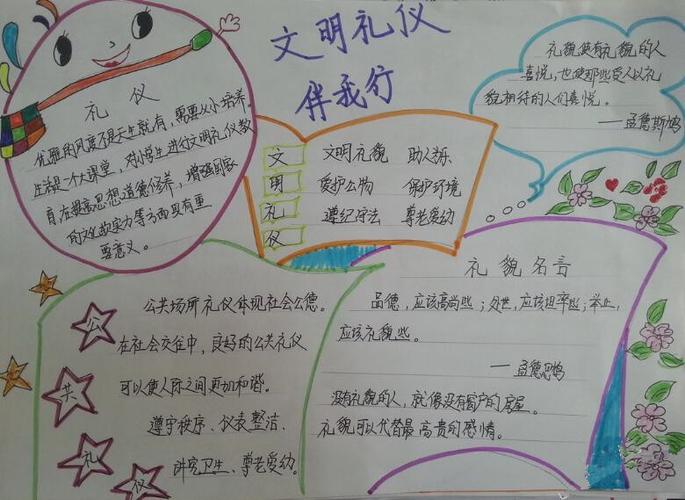 文明礼仪
伴我行
礼 仪
优雅的风度不是天生就有，需要从小培养。
生活是一个大课堂，对小学生进行文明礼仪教
育在提高思想道德修养，增强国家
的文化软实力等方面具有重
要意义。
文 文明礼貌 助人为乐
明 爱护公物 保护环境
礼 遵纪守法 尊老爱幼
仪
礼貌使有礼貌的人
喜悦，也使那些受人以礼
貌相待的人们喜悦。
——孟德斯鸠
公共礼仪
公共场所礼仪体现社会公德。
在社会交往中，良好的公共礼仪
可以使人际之间更加和谐。
遵守秩序、仪表整洁、
讲究卫生、尊老爱幼。
礼貌名言
品德，应该高尚些；处世，应该坦率些；举止，
应该礼貌些。
——孟德思鸠
没有礼貌的人，就像没有窗户的房屋。
礼貌可以代替最高贵的感情。